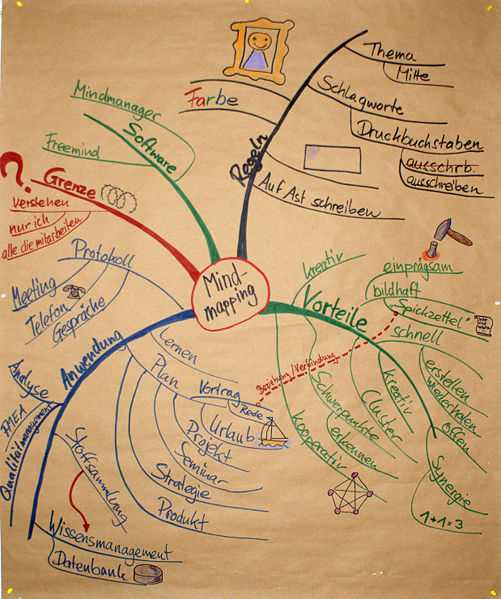 Mind-
mapping
Regeln
Thema
Mitte
Schlagworte
Druckbuchstaben
ausschrb.
ausschreiben
Farbe
Auf Ast schreiben
Software
Mindmanager
Freemind
Grenze
?
verstehen
nur ich
alle die mitarbeiten
Vorteile
kreativ
einprägsam
bildhaft
"Spickzettel"
schnell
erstellen
wiederholen
offen
kreativ
Cluster
Schwerpunkte
erkennen
kooperativ
Synergie
1+1=3
Beziehung/Verbindung
Anwendung
Protokoll
Meeting
Telefon
Gespräche
Lernen
Plan
Vortrag
Rede
Urlaub
Projekt
Seminar
Strategie
Produkt
Analyse
FMEA
Qualitätsmanagement
Stoffsammlung
Wissensmanagement
Datenbank